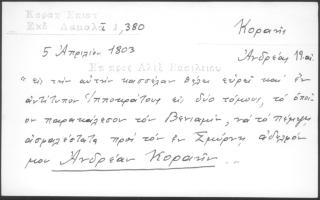 Κοραῆ Επιστ
Εκδ Δαμαλᾶ I, 380
Κοραῆν
5 Ἀπριλίου 1803
Ἀνδρέας
"εἰς τὴν αὐτὴν κασσέλαν θέλει εὑρεῖ καὶ ἓν
ἀντίτυπον Ἱπποκράτους εἰς δύο τόμους, τὸ ὁποῖ-
ον παρακάλεσον τὸν Βενιαμὶν, νὰ τὸ πέμψῃ
ἀσφαλέστατα πρὸς τὸν ἐν Σμύρνῃ ἀδελφόν
μου Ἀνδρέαν Κοραῆν...